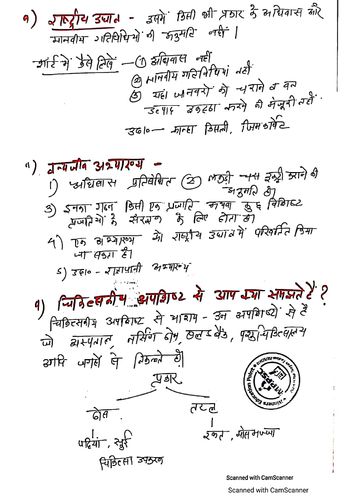 १) राष्ट्रीय उद्यान - इसमें किसी भी प्रकार के अधिवास और
मानवीय गतिविधियों की अनुमति नहीं।
शार्ट में कैसे लिखें - ① अधिवास नहीं
② मानवीय गतिविधियां नहीं
③ यहां जानवरों को चराने व वन
उत्पाद इकट्ठा करने की मंजूरी नहीं.
उदा० - कान्हा किसली, जिमकार्बेट
२) वन्यजीव अभ्यारण्य -
1) अधिवास प्रतिबंधित ② लकड़ी इकट्ठी कराने की
अनुमति है।
3) इनका गठन किसी एक प्रजाति अथवा कुछ विशिष्ट
प्रजातियों के संरक्षण के लिए होता है।
4) एक अभ्यारण्य को राष्ट्रीय उद्यान में परिवर्तित किया
जा सकता है।
5) उदा० - अभ्यारण्य
१) चिकित्सकीय अपशिष्ट से आप क्या समझते हैं?
चिकित्सकीय अपशिष्ट से आशय - उन अपशिष्टों से है
जो अस्पताल, नर्सिंग होम, ब्लड बैंक, पशुचिकित्सालय
आदि जगहों से निकलते हैं।
प्रकार
ठोस तरल
पट्टियां, सुई रक्त, बोनमज्जा
चिकित्सा उपकरण
Scanned with CamScanner
Scanned with CamScanner